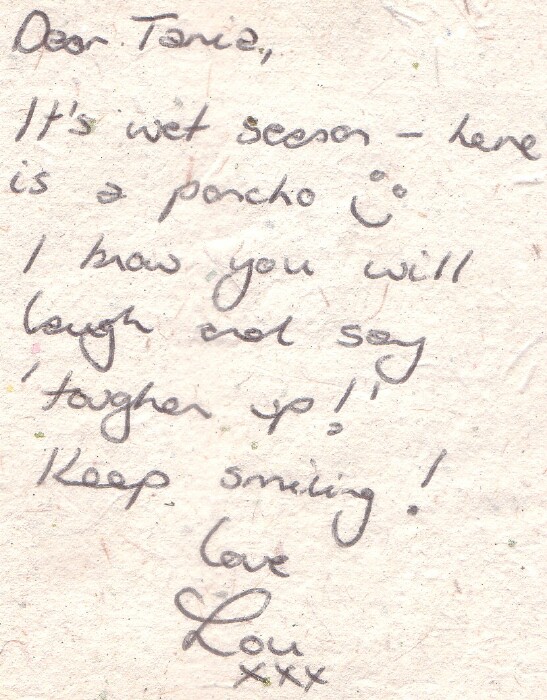 Dear Tania,
It's wet season – here
is a poncho
I know you will
laugh and say
'toughen up!'
Keep smiling!
love
Lou
xxx